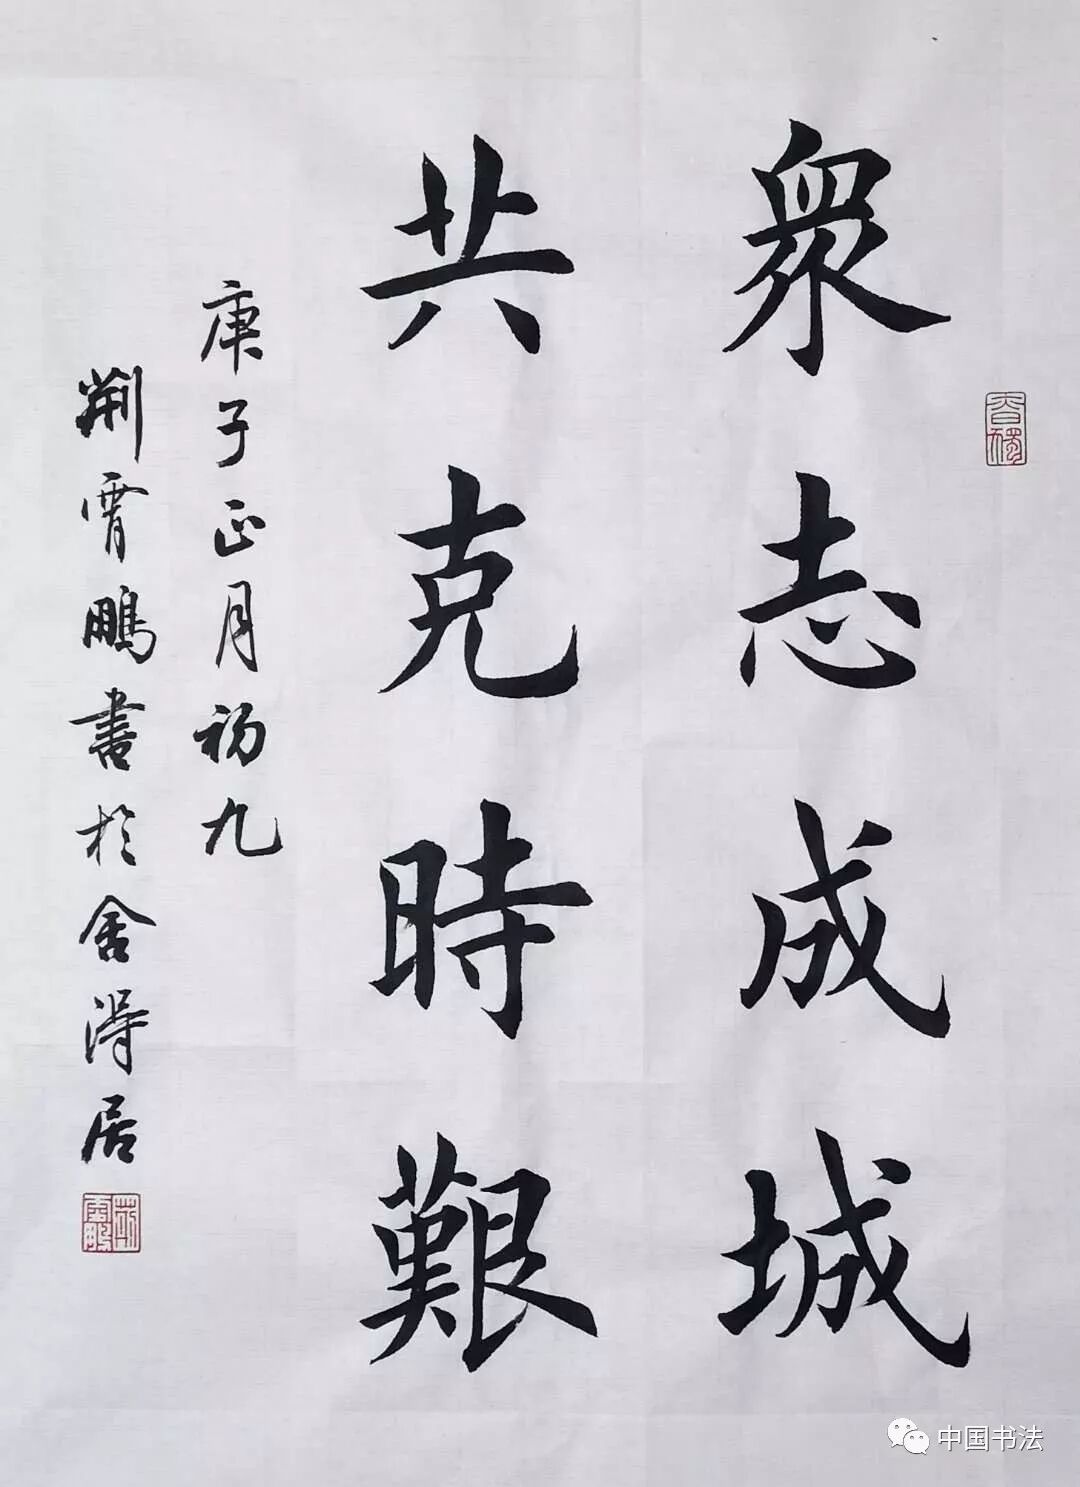 衆志成城
共克時艱
庚子正月初九
荆霄鵬書於舍得居
荆霄鵬
中国书法